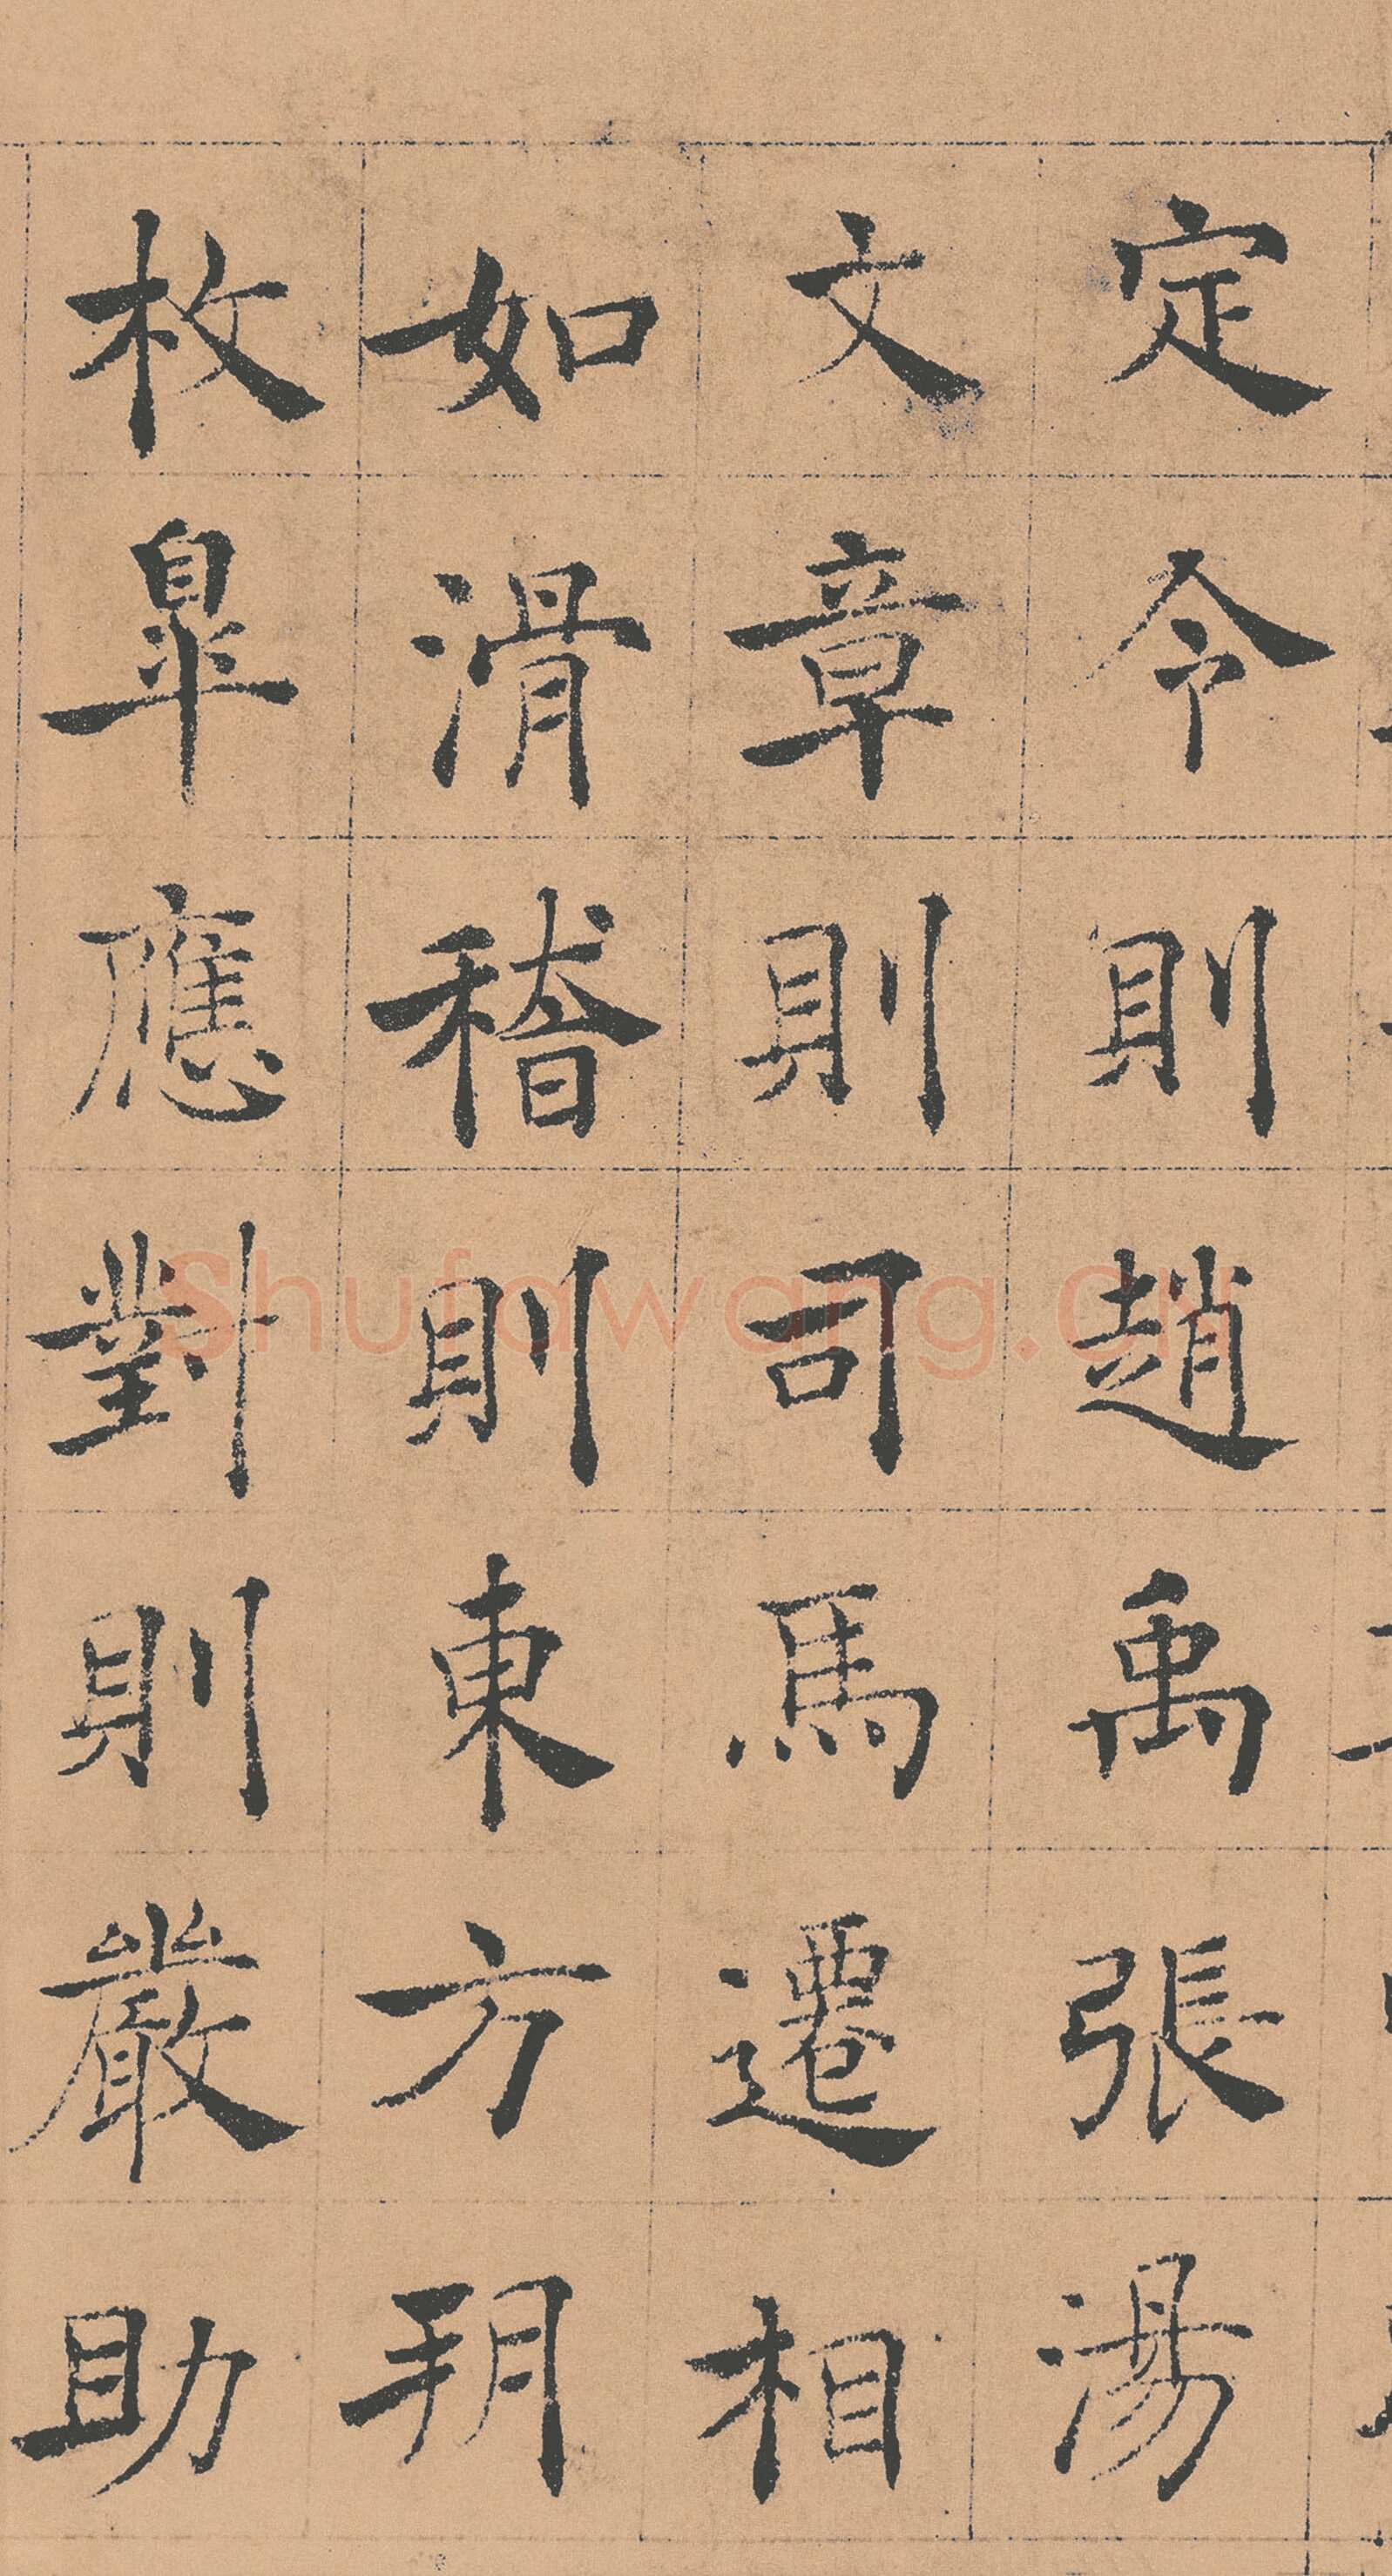 定令則趙禹張湯
文章則司馬遷相
如滑稽則東方朔
枚皋應對則嚴助
Shufawang.CN